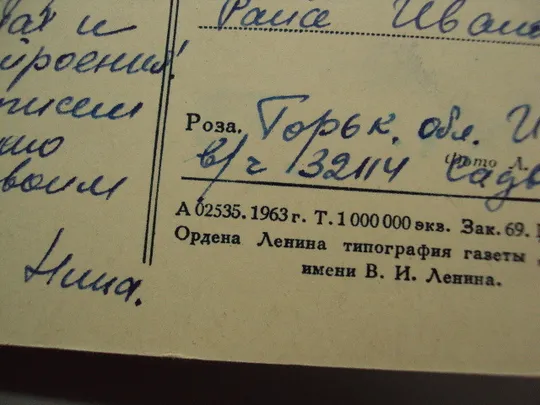 и
роения!
писем
воим
Нина.
Раиса Иван
Роза. Горьк. обл.
в/ч 32114 Фото А.
А 02535. 1963 г. Т. 1 000 000 экв. Зак. 69.
Ордена Ленина типография газеты
имени В. И. Ленина.